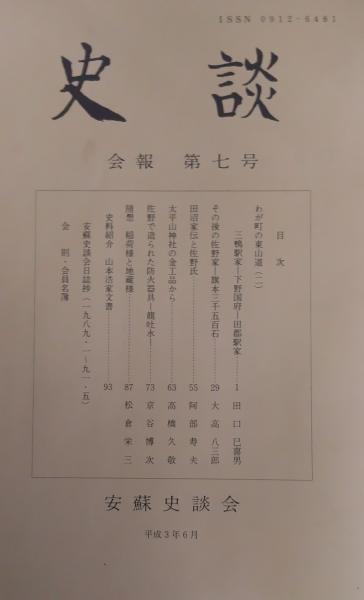 ISSN 0912-6481
史談
会報 第七号
目次
わが町の東山道(二)
三鴨駅家─下野国府─田郡駅家─ 1 田口巳喜男
その後の佐野家─旗本三千五百石─ 29 大高八三郎
田沼家伝と佐野氏 55 阿部寿夫
太平山神社の金工品から 63 高橋久敬
佐野で造られた防火器具─龍吐水─ 73 京谷博次
随想 稲荷様と地蔵様 87 松倉栄三
史料紹介 山本浩家文書 93
安蘇史談会日誌抄(一九八九・一~九一・五)
会則・会員名簿
安蘇史談会
平成3年6月